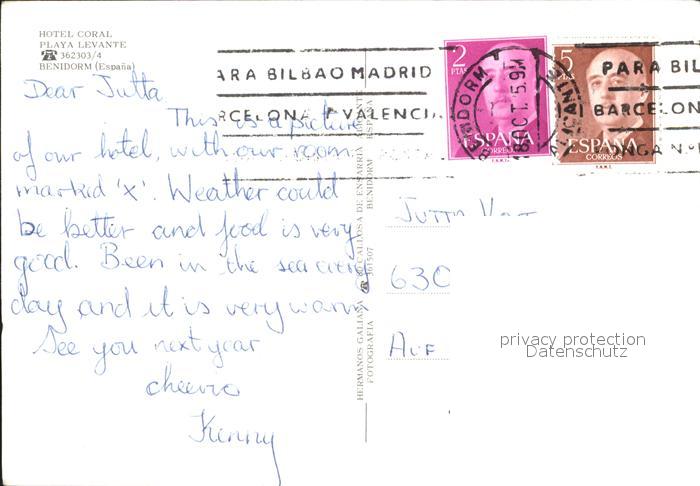 HOTEL CORAL
PLAYA LEVANTE
☎ 362303/4
BENIDORM (España)
Dear Jutta
This is a picture
of our hotel, with our room
markid 'x'. Weather could
be better and food is very
good. Been in the sea every
day and it is very warm
See you next year
cheerio
Kenny
HERMANOS GALIANA
FOTOGRAFIA
☎ 361507
CALLOSA DE ENSARRIA
BENIDORM
ESPAÑA
ARA BILBAO MADRID
RCELONA Y VALENCI
2
PTAS
ESPAÑA
CORREOS
F.N.M.T.
18 OCT. 5.9M
5
PTAS
ESPAÑA
CORREOS
F.N.M.T.
PARA BIL
BARCELON
JUTTA
630
AUF
privacy protection
Datenschutz